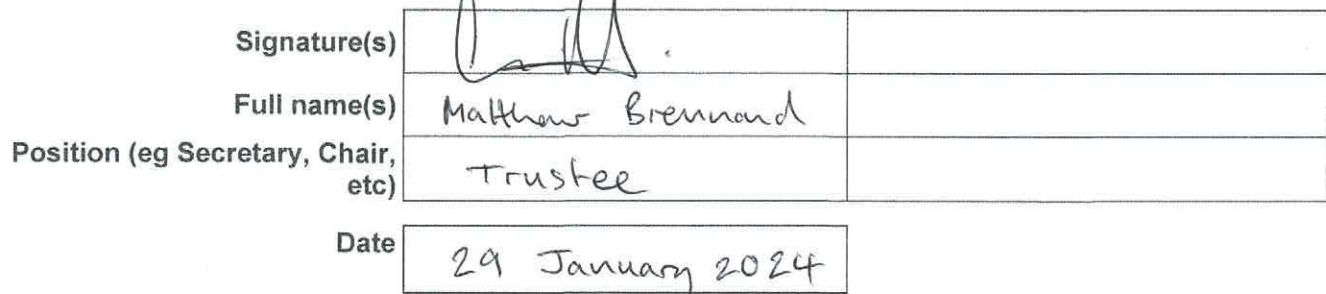 Signature(s)
Full name(s) Matthew Brennand
Position (eg Secretary, Chair,
etc) Trustee
Date 29 January 2024